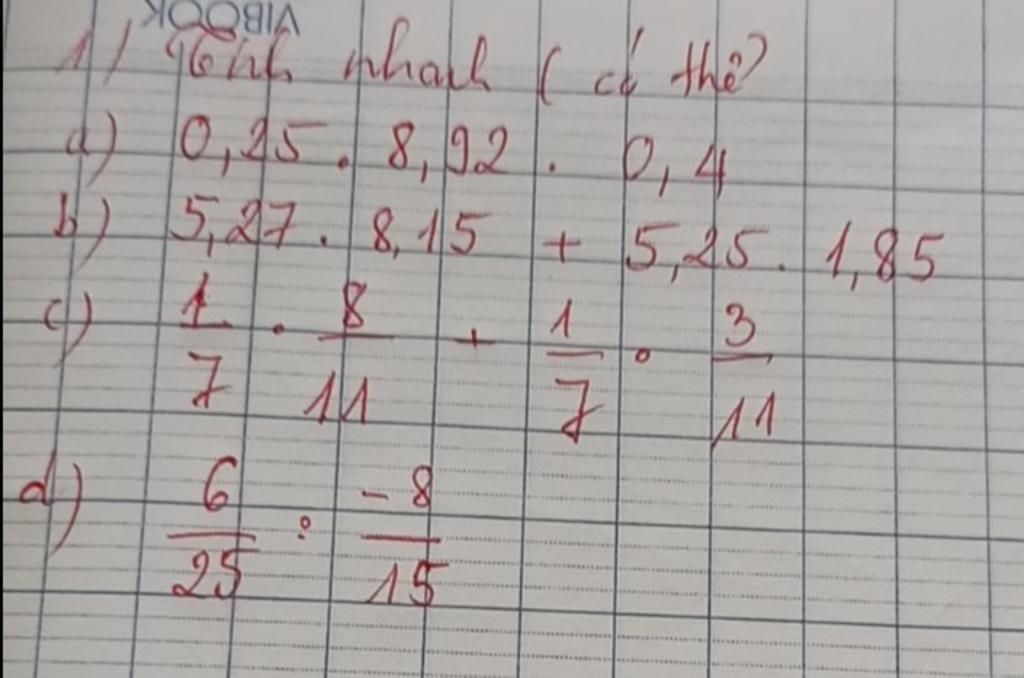 VIBOOK
1) Tính nhanh (có thể)
a) 0,25 . 8,92 . 0,4
b) 5,27 . 8,15 + 5,25 . 1,85
c) 1/7 . 8/11 + 1/7 . 3/11
d) 6/25 : -8/15